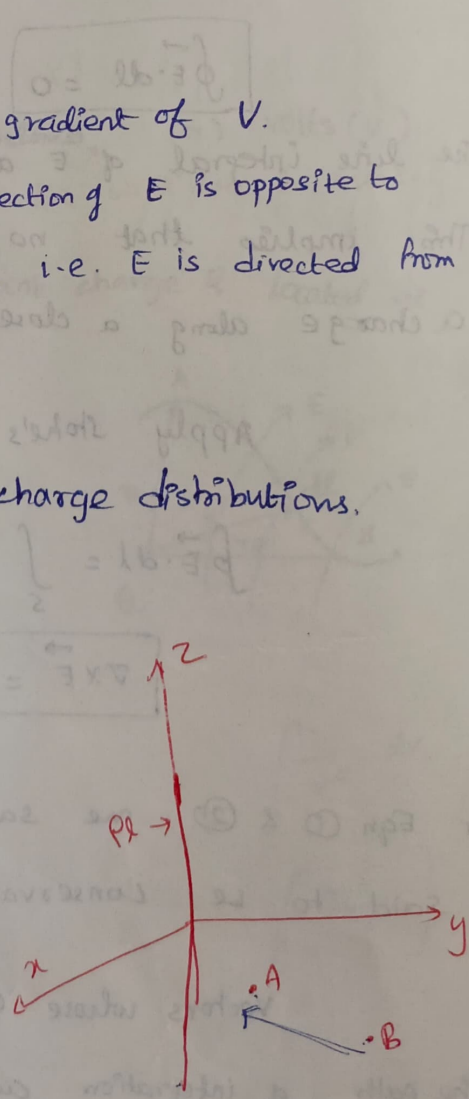 gradient of V.
ection of E is opposite to
i.e. E is directed from
charge distributions.
z
ρl →
y
x
A
B